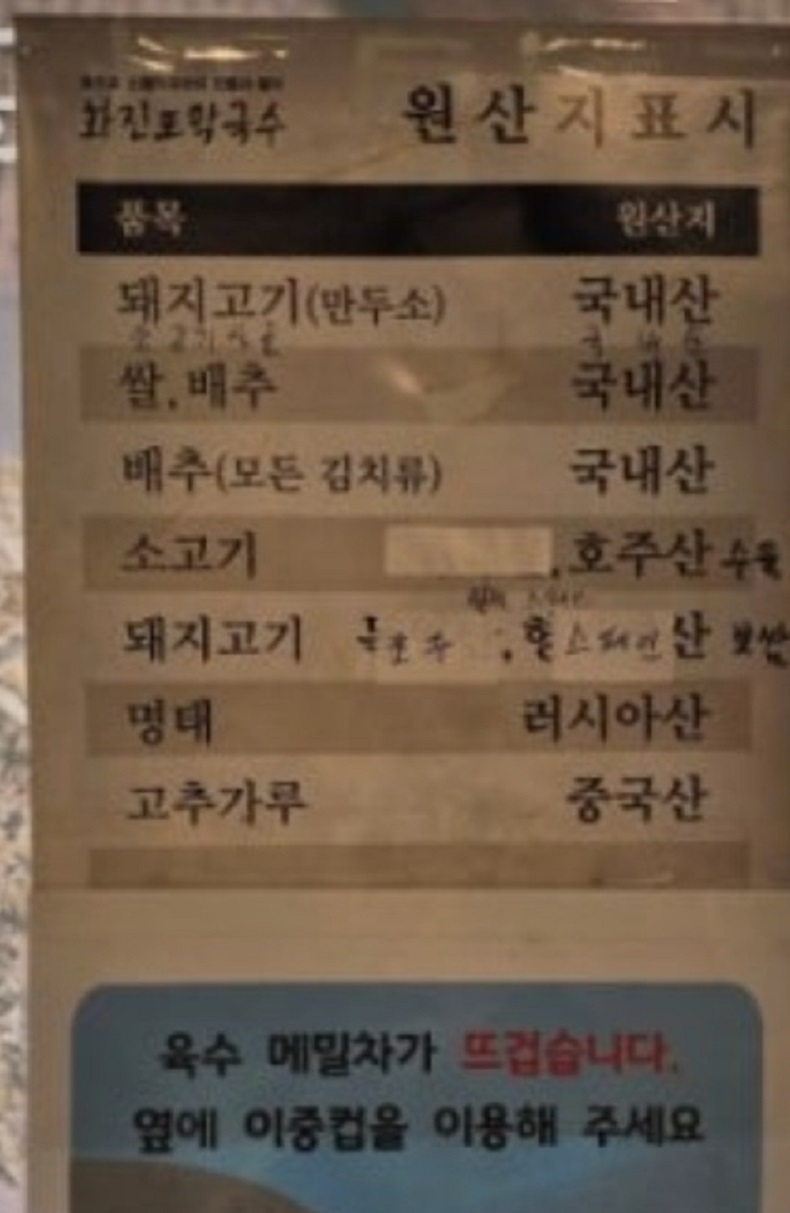 화진포막국수 원산지표시
품목 원산지
돼지고기(만두소) 국내산
쌀, 배추 국내산
배추(모든 김치류) 국내산
소고기 , 호주산 수육
돼지고기 호주 , 스페인산 보쌈
명태 러시아산
고추가루 중국산
육수 메밀차가 뜨겁습니다.
옆에 이중컵을 이용해 주세요